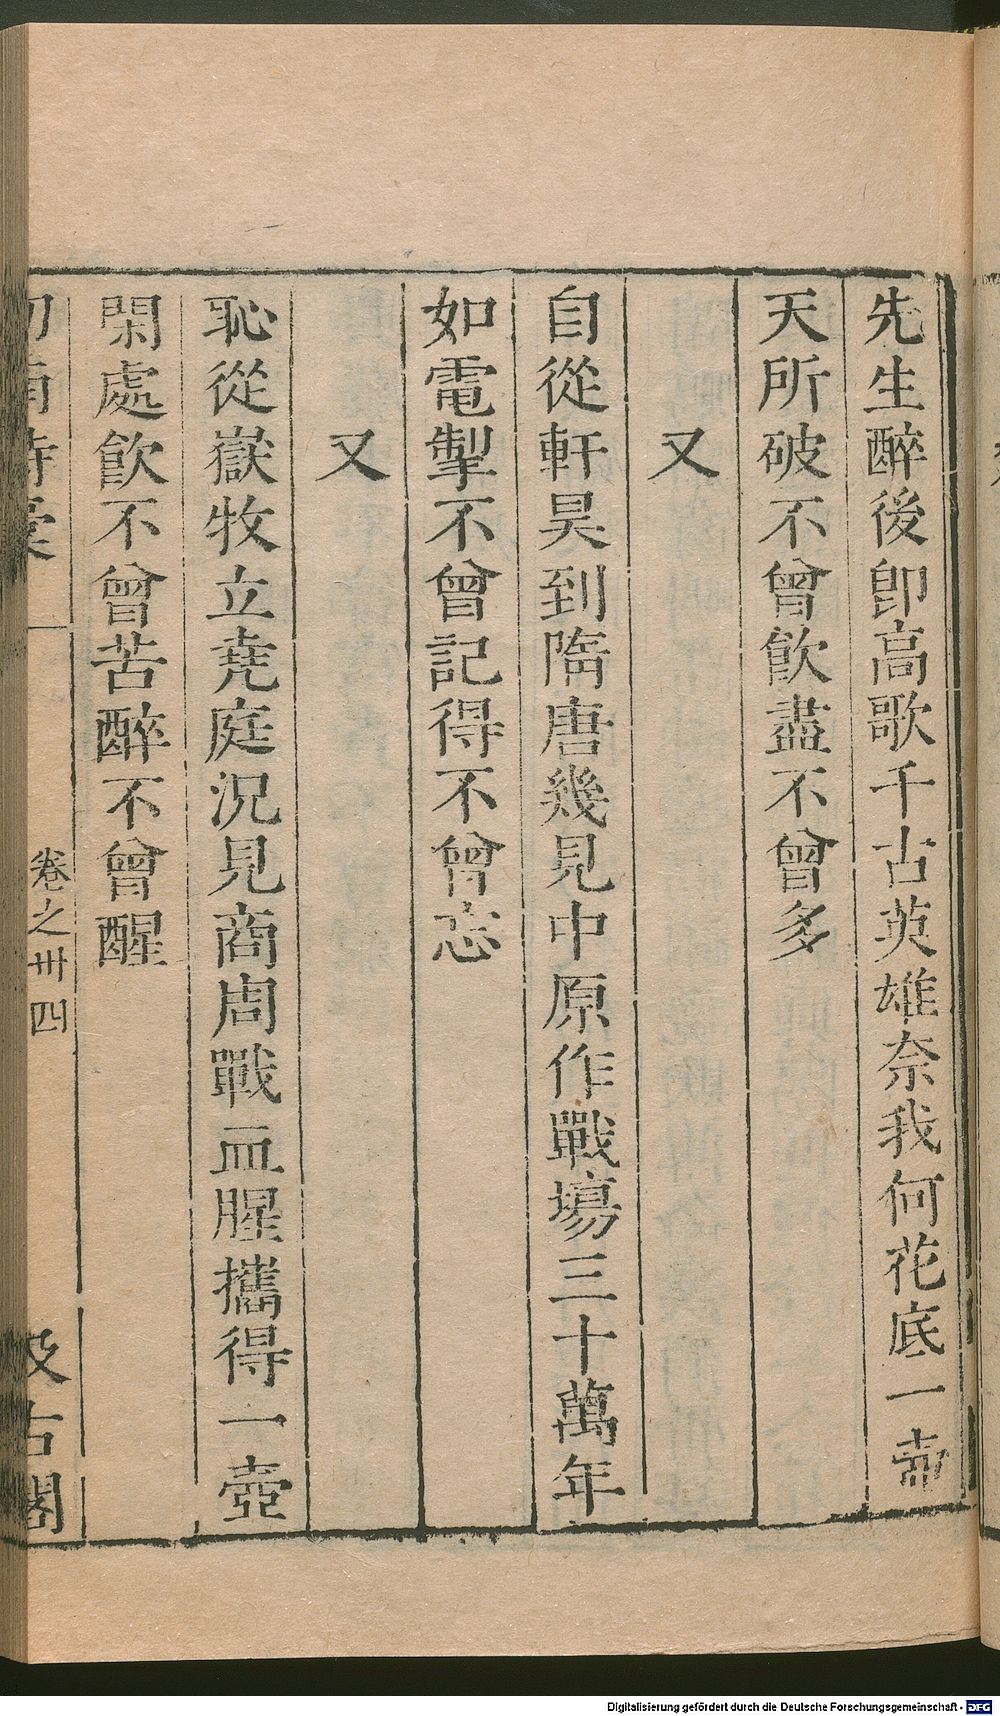 先生醉後卽高歌千古英雄奈我何花底一壷
天所破不曾飮盡不曾多
又
自從軒昊到隋唐幾見中原作戰塲三十萬年
如電掣不曾記得不曾忘
又
恥從嶽牧立堯庭況見商周戰血腥攜得一壺
閑處飮不曾苦醉不曾醒
卷之卅四
汲古閣
Digitalisierung gefördert durch die Deutsche Forschungsgemeinschaft - DFG